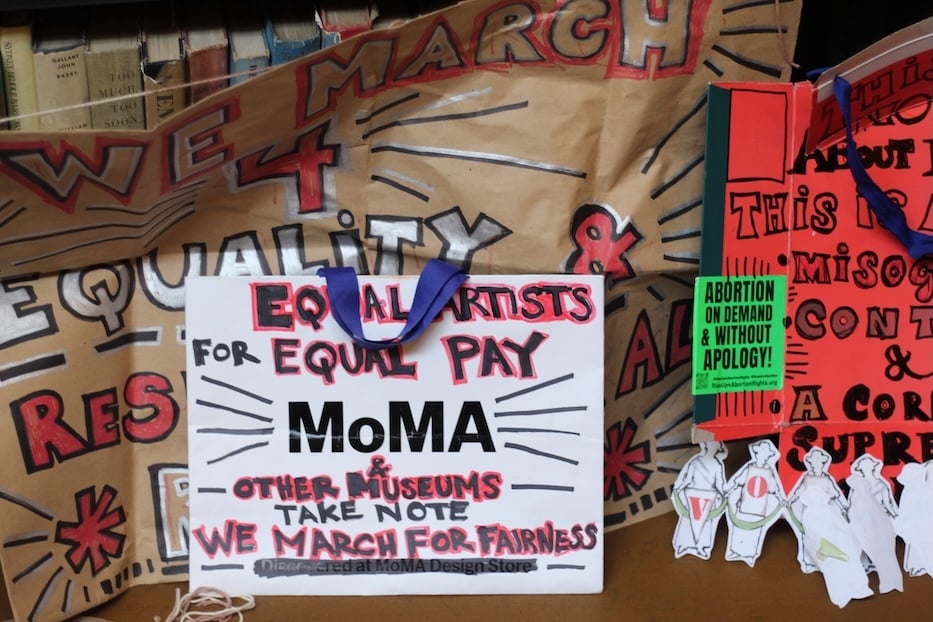 GALLANT
JOHN
KASEY
TOO
MUCH
TOO
SOON
WE MARCH
4
EQUALITY &
RES
EQUAL ARTISTS
FOR EQUAL PAY
MoMA
&
OTHER MUSEUMS
TAKE NOTE
WE MARCH FOR FAIRNESS
Discovered at MoMA Design Store
THIS
ABOUT
THIS IS A
MISOG
CONT
&
A COR
SUPRE
ABORTION
ON DEMAND
& WITHOUT
APOLOGY!
RiseUp4AbortionRights.org
V O